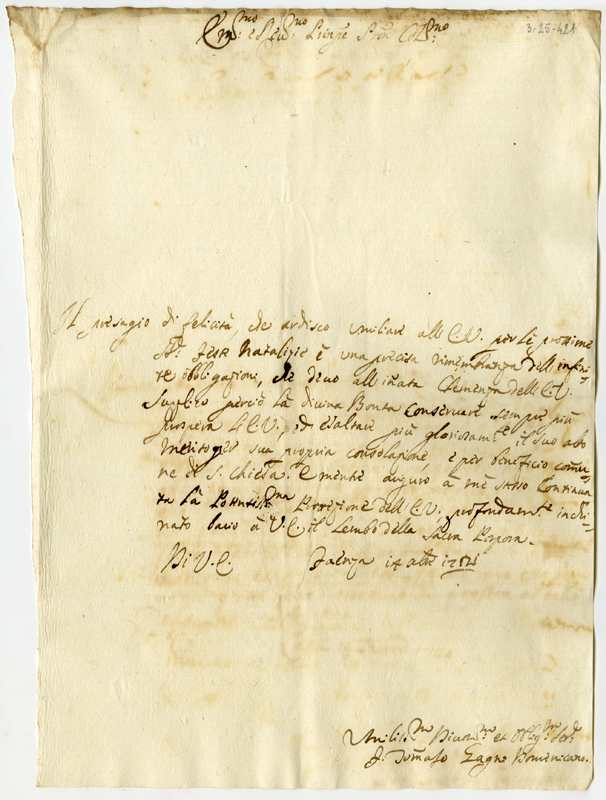 Em:mo e Rev:mo Pnpe Sig Col:mo
3-25-421
Il presagio di felicità, che ardisco umiliare all E.V. per le prossime
S:te Feste Natalizie è una precisa rimembranza dell infini=
te obbligazioni, che devo all innata Clemenza dell E.V.
Suplico perciò la divina Bontà conservare sempre più
prospera l E.V., ed esaltare più gloriosam:te il suo alto
merito per sua propria consolazione, e per beneficio comu=
ne di S. Chiesa. E mentre auguro à me stesso continua=
ta la Potentiss:ma Protezione dell E.V. profondam:te inchi=
nato bacio à V.E. il Lembo della Sacra Porpora.
Di V.E. Faenza 14 xbre
Umiliss:mo Divot:mo et Obblig:mo Ser:e
F. Tomaso Domenicano.